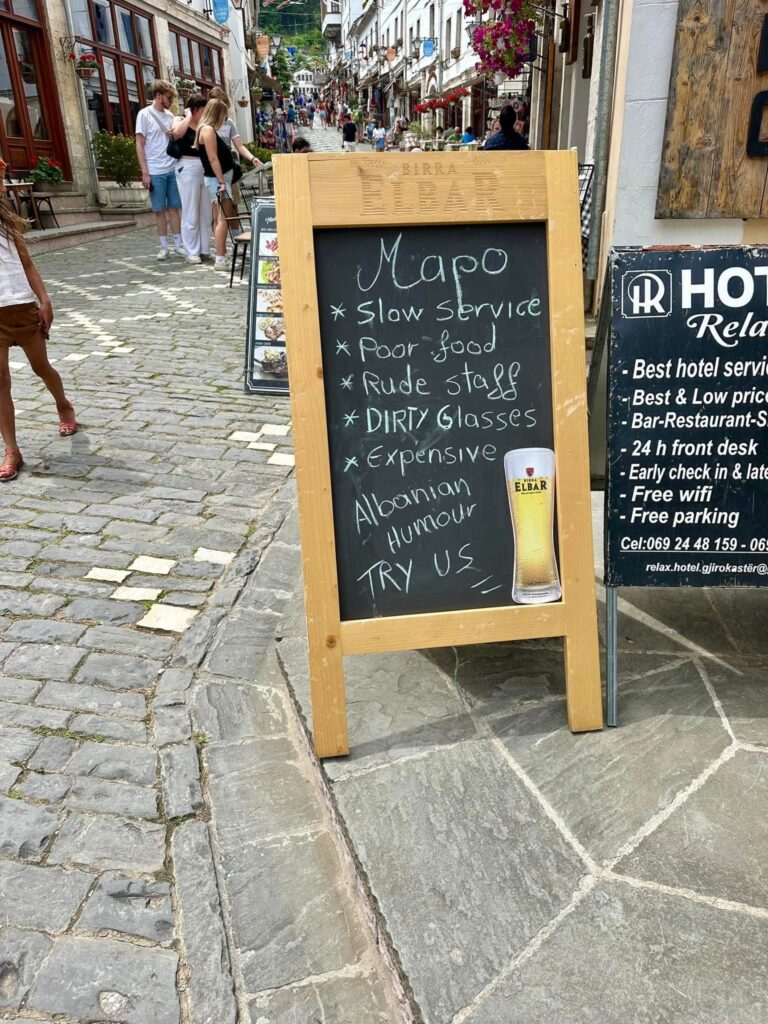 BIRRA
ELBAR
Mapo
* Slow service
* Poor food
* Rude staff
* DIRTY Glasses
* Expensive
Albanian
Humour
TRY US
BIRRA
ELBAR
HR
HOT
Rela
- Best hotel servic
- Best & Low price
- Bar-Restaurant-S
- 24 h front desk
- Early check in & late
- Free wifi
- Free parking
Cel:069 24 48 159 - 069
relax.hotel.gjirokastër@